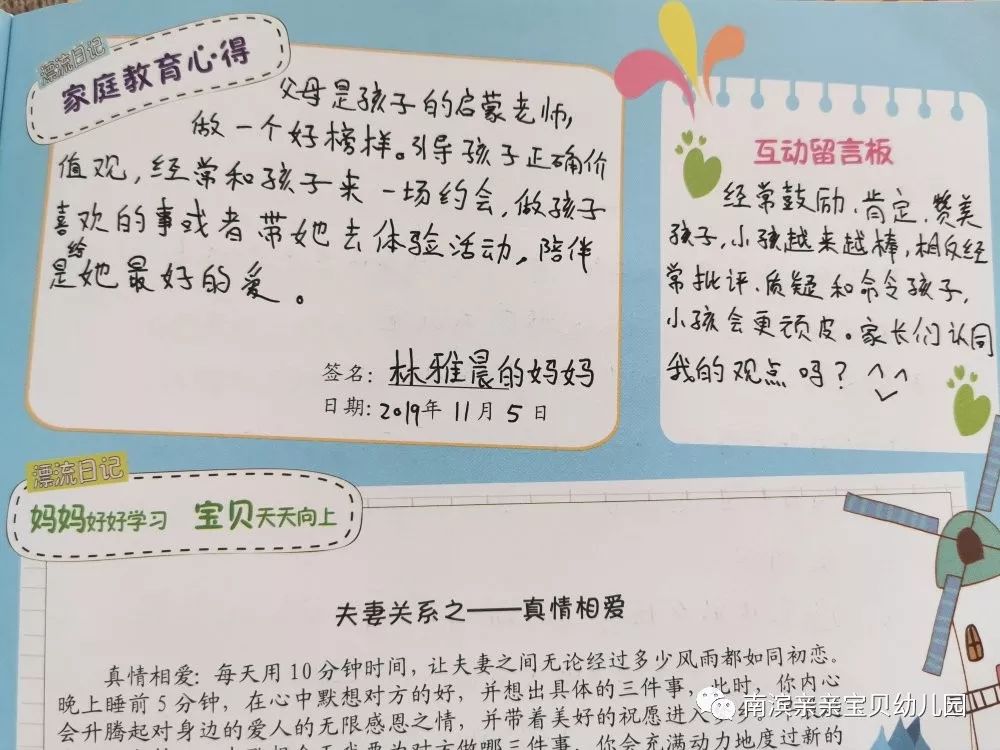 漂流日记
家庭教育心得
父母是孩子的启蒙老师,
做一个好榜样。引导孩子正确价
值观,经常和孩子来一场约会,做孩子
喜欢的事或者带她去体验活动,陪伴
是给她最好的爱。
签名:林雅晨的妈妈
日期:2019年11月5日
互动留言板
经常鼓励、肯定、赞美
孩子,小孩越来越棒,相反经
常批评、质疑和命令孩子,
小孩会更顽皮。家长们认同
我的观点吗?
漂流日记
妈妈好好学习 宝贝天天向上
夫妻关系之——真情相爱
真情相爱:每天用10分钟时间,让夫妻之间无论经过多少风雨都如同初恋。
晚上睡前5分钟,在心中默想对方的好,并想出具体的三件事,此时,你内心
会升腾起对身边的爱人的无限感恩之情,并带着美好的祝愿进入
对方做哪三件事,你会充满动力地度过新的
南滨亲亲宝贝幼儿园